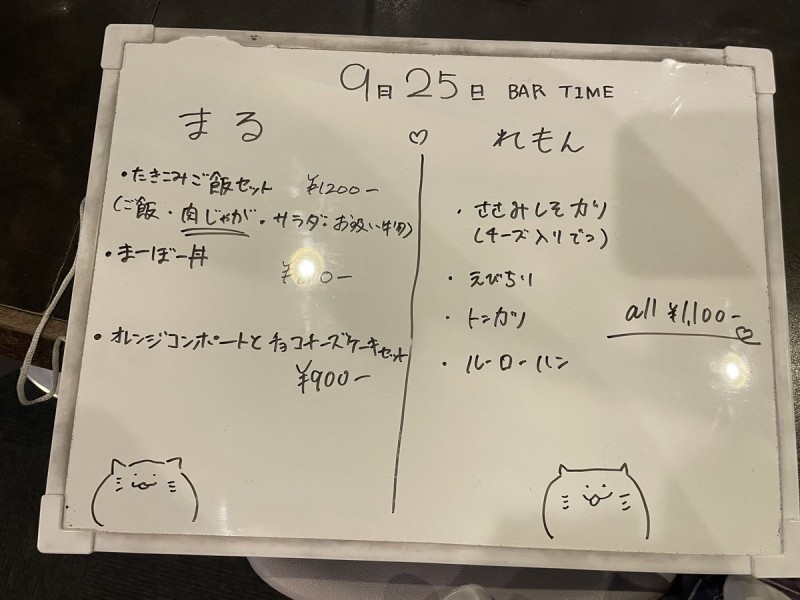 9月25日 BAR TIME
まる
・たきこみご飯セット ¥1200-
(ご飯・肉じゃが・サラダ・お吸い物)
・まーぼー丼
・オレンジコンポートとチョコチーズケーキセット
¥900-
れもん
・ささみしそカツ
(チーズ入りでっ)
・えびちり
・トンカツ
・ルーローハン
all ¥1,100-